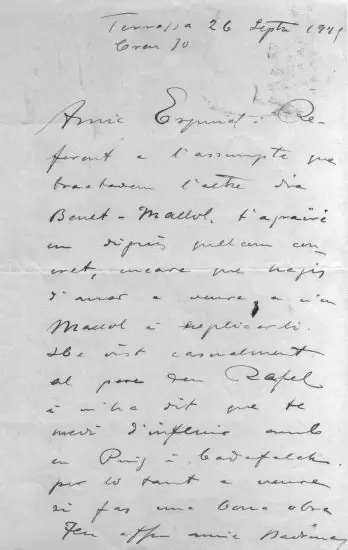 Terrassa 26 Septbre 19
Creu 70
Amic Esquirol: Re-
ferent a l'assumpte que
tractavem l'altre dia
Benet-Mallol, t'agrairé
em diguis quelcom con
cret, encare que hagis
d'anar a veure a n'en
Mallol i explicarli.
He vist casualment
al pare den Rafel
i m'ha dit que te
medi d'influir amb
en Puig i Cadafalch.
per lo tant a veure
si fas una bona obra
Teu affm amic